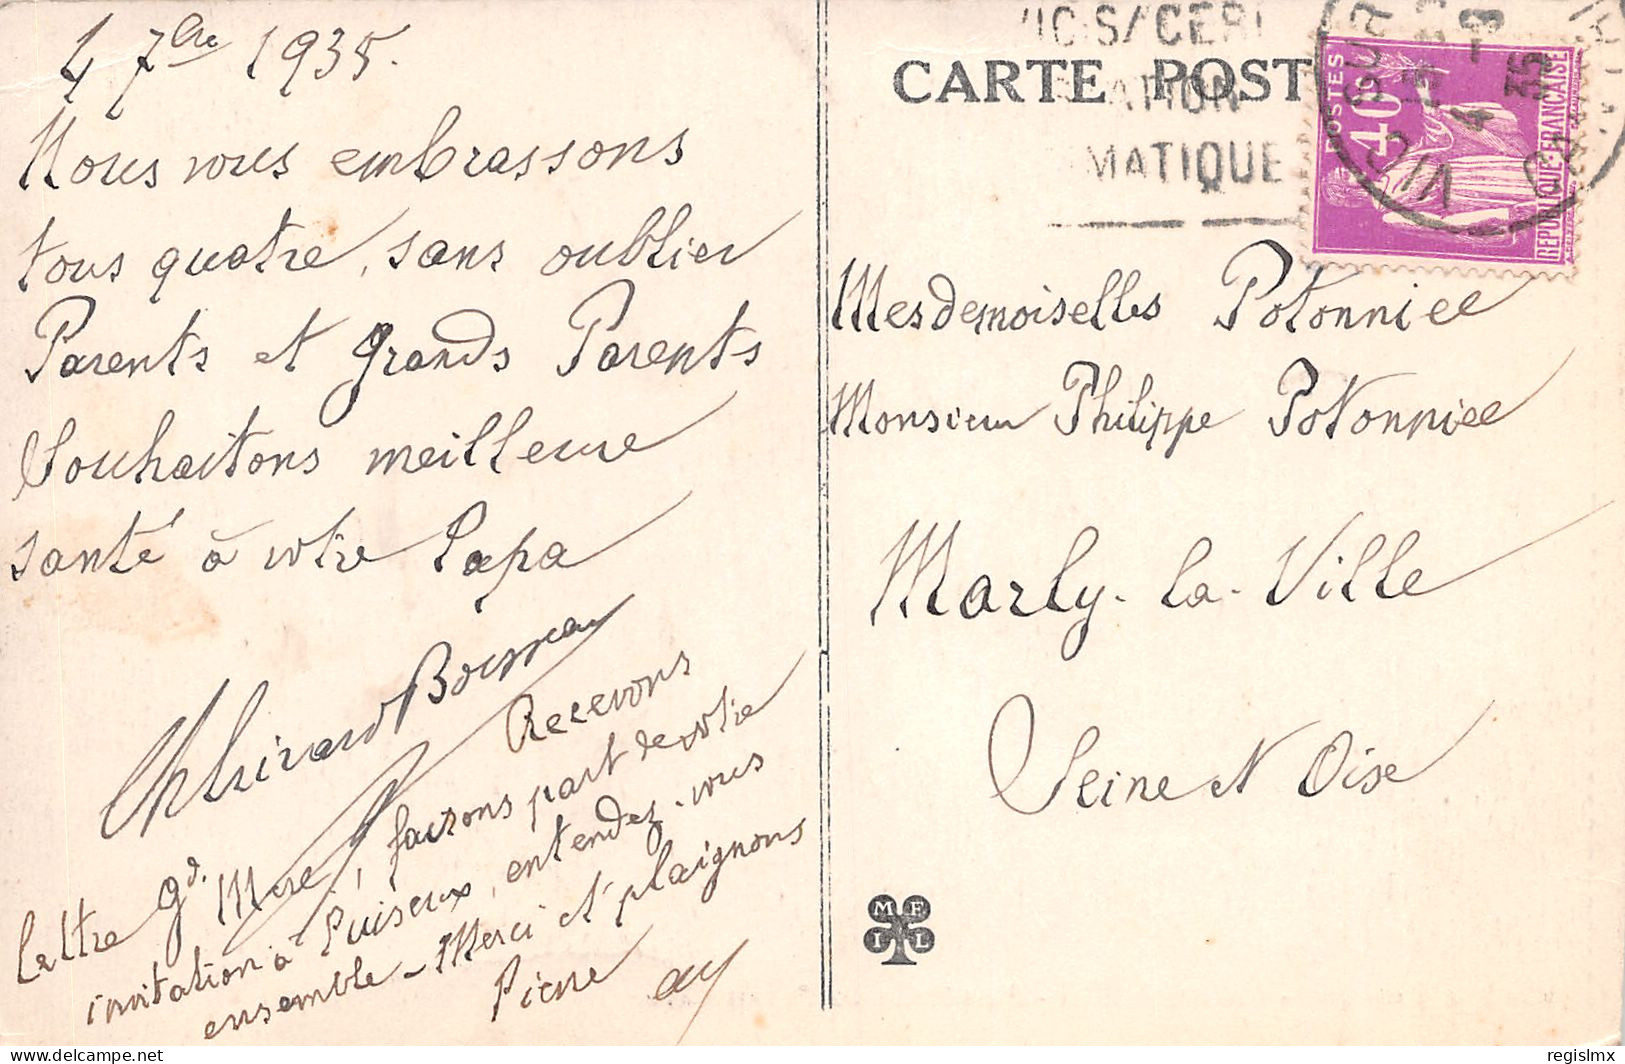 4 7bre 1935.
Nous vous embrassons
tous quatre, sans oublier
Parents et grands Parents
Souhaitons meilleure
santé à votre Papa
Recevons
lettre gd. Mère, faisons part de votre
invitation à Puiseux, entendez-vous
ensemble - Merci et plaignons
Pierre
CARTE POST
IC S/CER
ATION
MATIQUE
POSTES
40c
REPUBLIQUE FRANÇAISE
VIC SUR
4 - 9
35
Mesdemoiselles Potonniee
Monsieur Philippe Potonniee
Marly-la-Ville
Seine et Oise
M F
I L
www.delcampe.net
regislmx